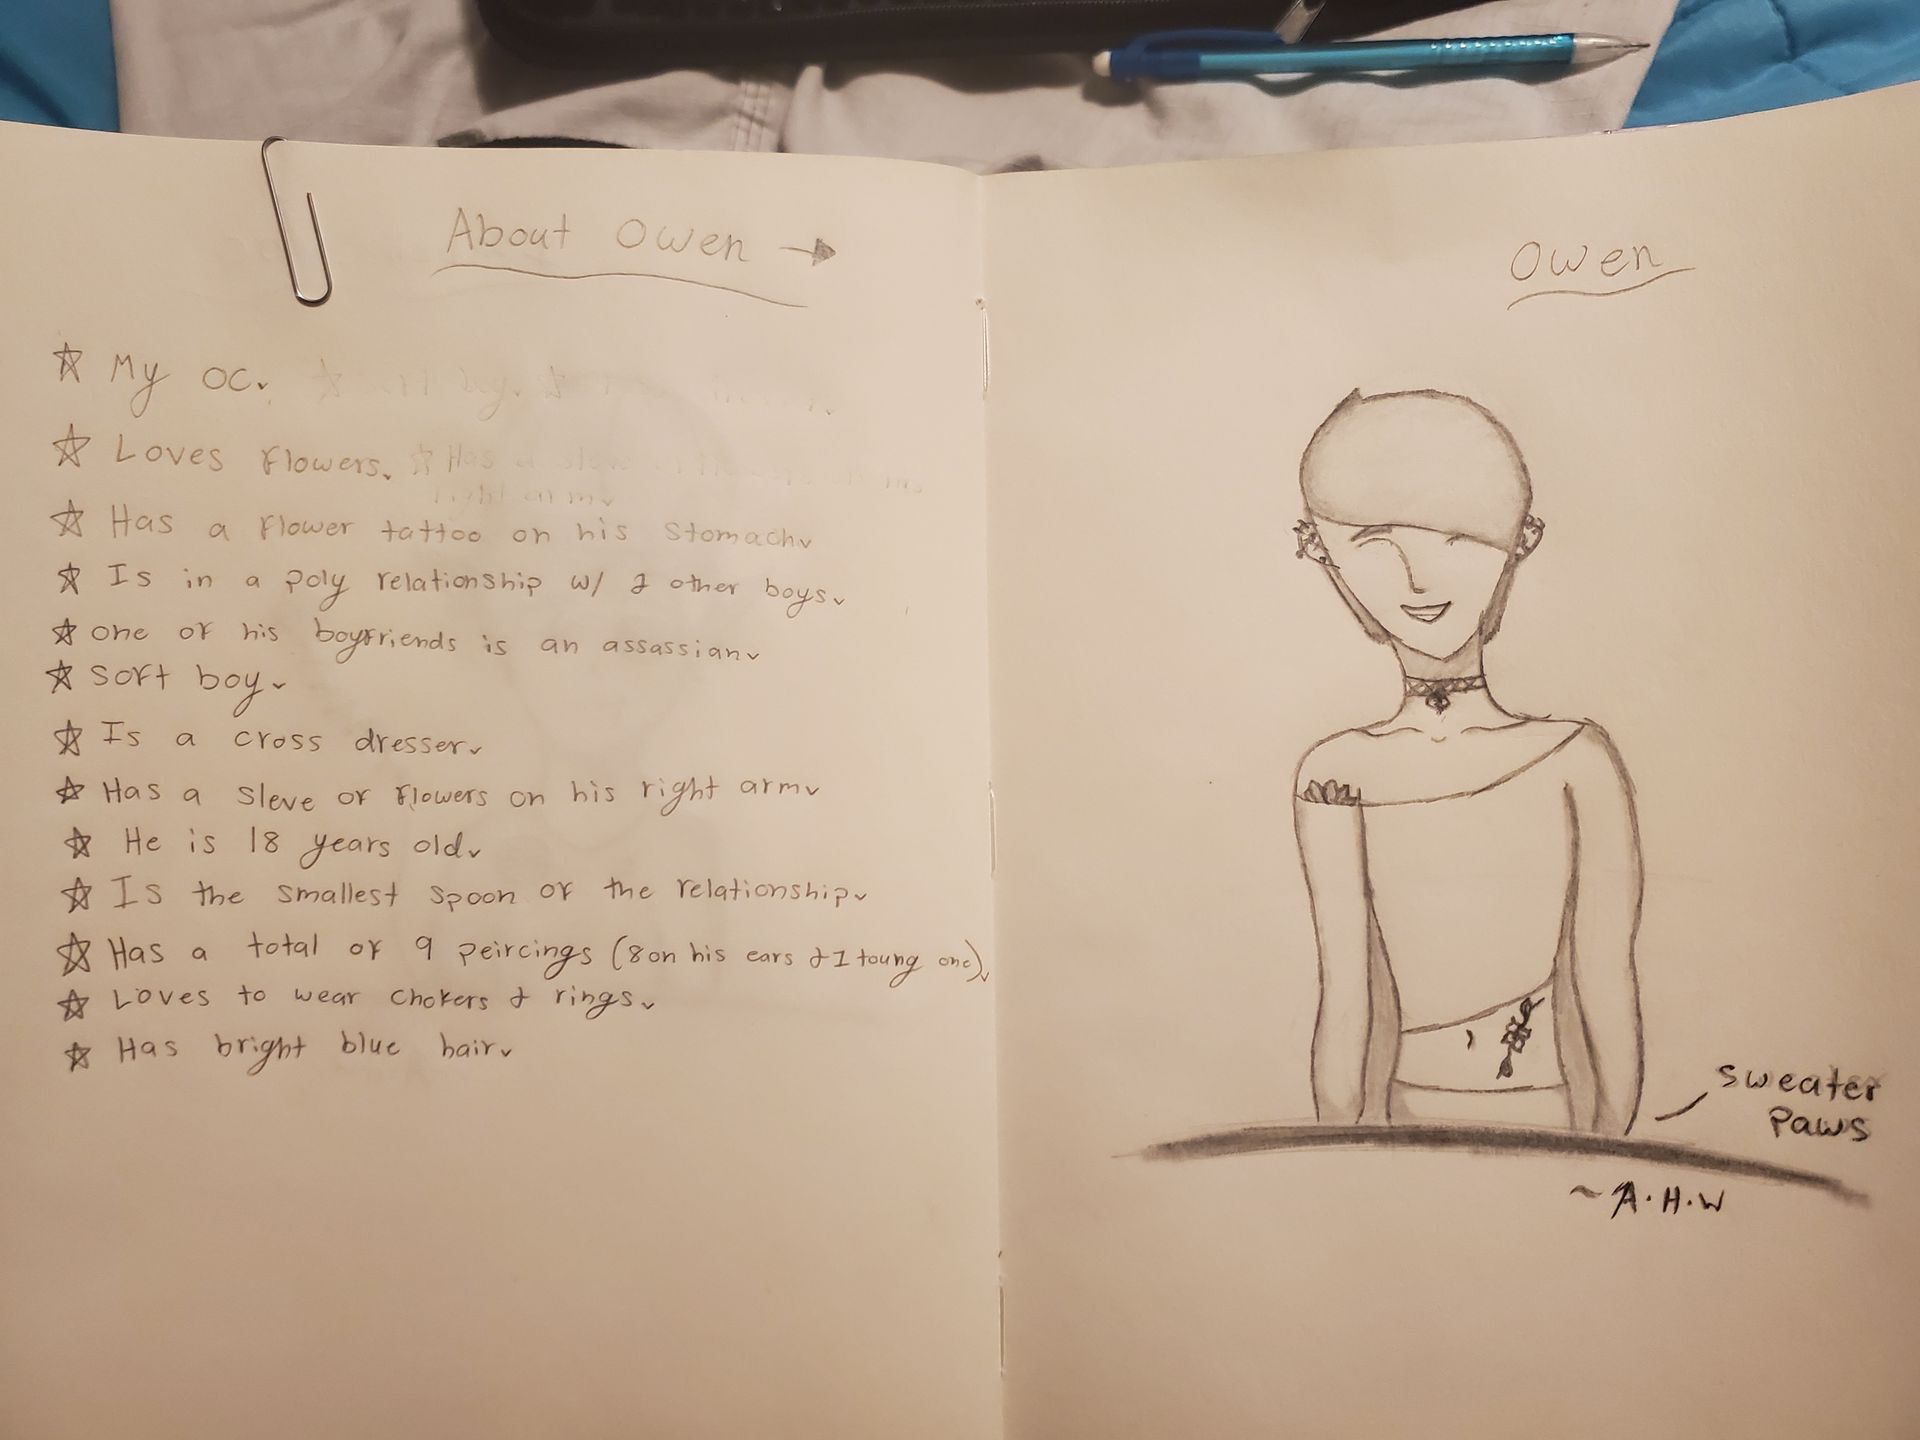 About Owen →
My OC.
Loves flowers.
Has a flower tattoo on his stomach.
Is in a poly relationship w/ 2 other boys.
one of his boyfriends is an assassian.
Soft boy.
Is a cross dresser.
Has a sleve of flowers on his right arm.
He is 18 years old.
Is the smallest spoon of the relationship.
Has a total of 9 peircings (8 on his ears & 1 toung one).
Loves to wear chokers & rings.
Has bright blue hair.
Owen
sweater
paws
~A.H.W